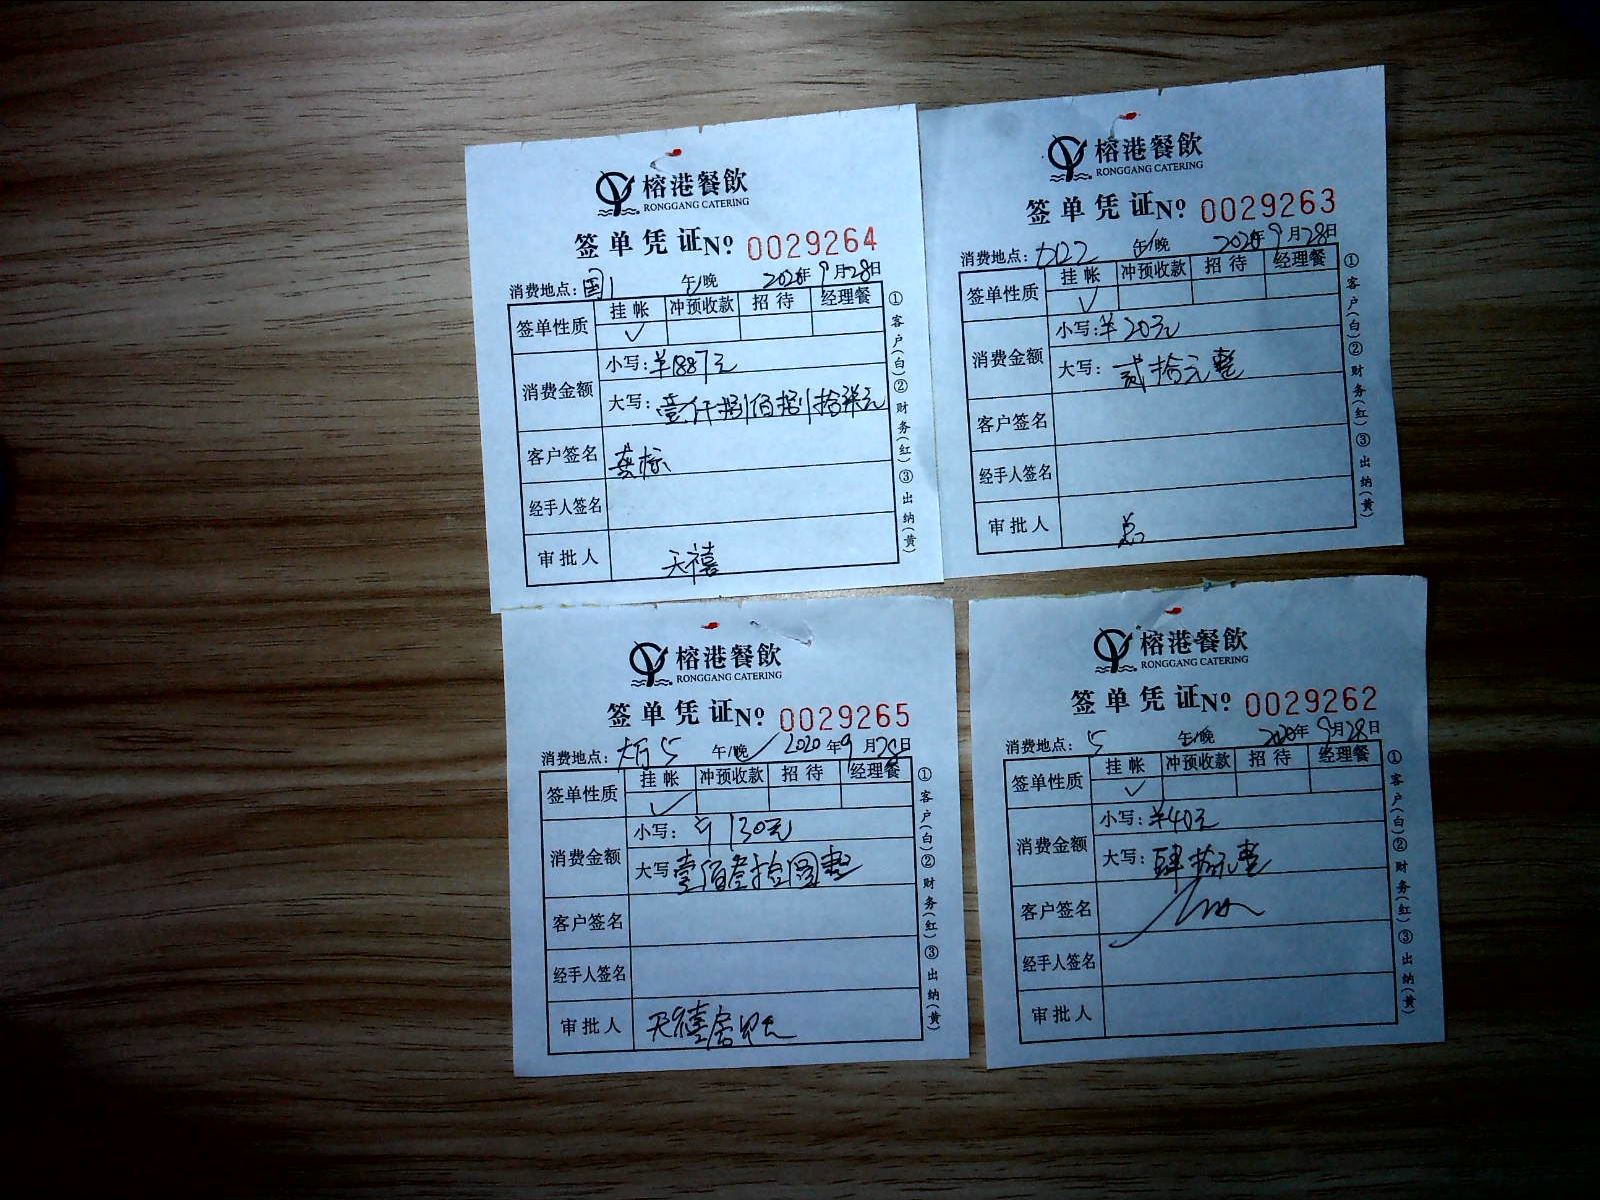 榕港餐飲
RONGGANG CATERING
签单凭证No 0029264
消费地点：国1 午/晚 2020年9月28日
签单性质 挂帐 冲预收款 招待 经理餐
✓
消费金额
小写：¥1887元
大写：壹仟捌佰捌拾柒元
客户签名
经手人签名
审批人 天禧
①客户(白)②财务(红)③出纳(黄)
榕港餐飲
RONGGANG CATERING
签单凭证No 0029263
消费地点： 午/晚 2020年9月28日
签单性质 挂帐 冲预收款 招待 经理餐
✓
消费金额
小写：¥20元
大写：贰拾元整
客户签名
经手人签名
审批人
①客户(白)②财务(红)③出纳(黄)
榕港餐飲
RONGGANG CATERING
签单凭证No 0029265
消费地点： 5 午/晚 ✓ 2020年9月28日
签单性质 挂帐 冲预收款 招待 经理餐
✓
消费金额
小写：¥130元
大写 壹佰叁拾圆整
客户签名
经手人签名
审批人 天禧
①客户(白)②财务(红)③出纳(黄)
榕港餐飲
RONGGANG CATERING
签单凭证No 0029262
消费地点：5 午/晚 2020年9月28日
签单性质 挂帐 冲预收款 招待 经理餐
✓
消费金额
小写：¥40元
大写：肆拾元整
客户签名
经手人签名
审批人
①客户(白)②财务(红)③出纳(黄)